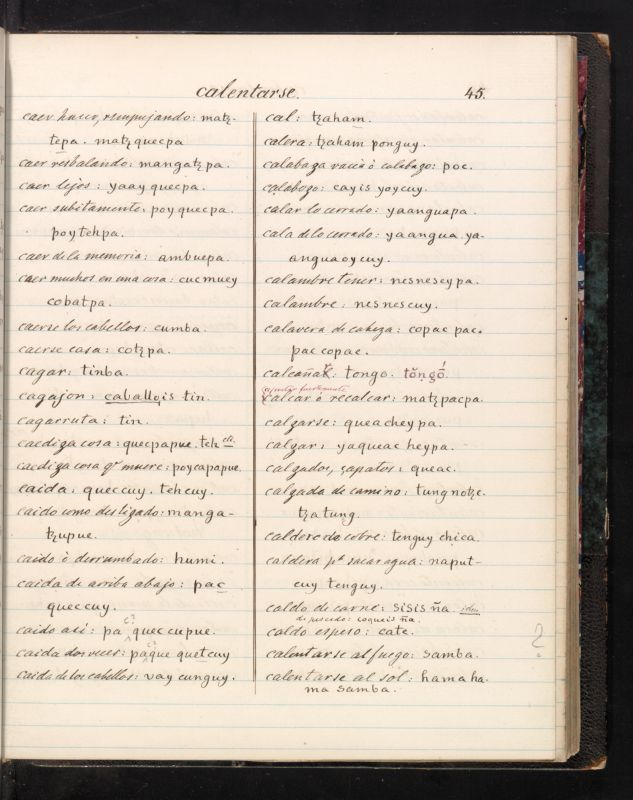 calentarse.
45.
caer hacer, rempujando: matz-
tepa. matz quecpa
caer resbalando: mangatz pa.
caer lejos: yaay quecpa.
caer subitamente: poy quecpa.
poy tehpa.
caer de la memoria: ambuepa.
caer muchos en una cosa: cucmuey
cobatpa.
caerse los cabellos: cumba.
caerse casa: cotzpa.
cagar: tinba.
cagajon: caballois tin.
cagarruta: tin.
caediza cosa: quecpapue. teh
caediza cosa qe muere: poycapapue.
caida: queccuy. tehcuy.
caido como deslizado: manga-
tzupue.
caido ò derrumbado: humi.
caida de arriba abajo: pac
queccuy.
caido asi: pa queccupue.
caida dos veces: paque quetcuy
caida de los cabellos: vay cunguy.
cal: tzaham.
calera: tzaham ponguy.
calabaza vacia ò calabazo: poc.
calabozo: cayis yoycuy.
calar lo cerrado: yaanguapa.
cala de lo cerrado: yaangua ya-
anguaoycuy.
calambre tener: nesnescypa.
calambre: nesnescuy.
calavera de cabeza: copac pac.
pac copac.
calcañar: tongo. tŏngó.
ajustar fuertemente
calcar ò recalcar: matzpacpa.
calzarse: queacheypa.
calzar: yaqueac heypa.
calzados, zapatos: queac.
calzada de camino: tungnotze.
tzatung.
caldero de cobre: tenguy chica.
caldera pa sacar agua: naput-
cuy tenguy.
caldo de carne: sisis ña. idem
de pescado: coqueis ña.
caldo espeso: cate.
calentarse al fuego: samba.
calentarse al sol: hamaha-
ma samba.
?